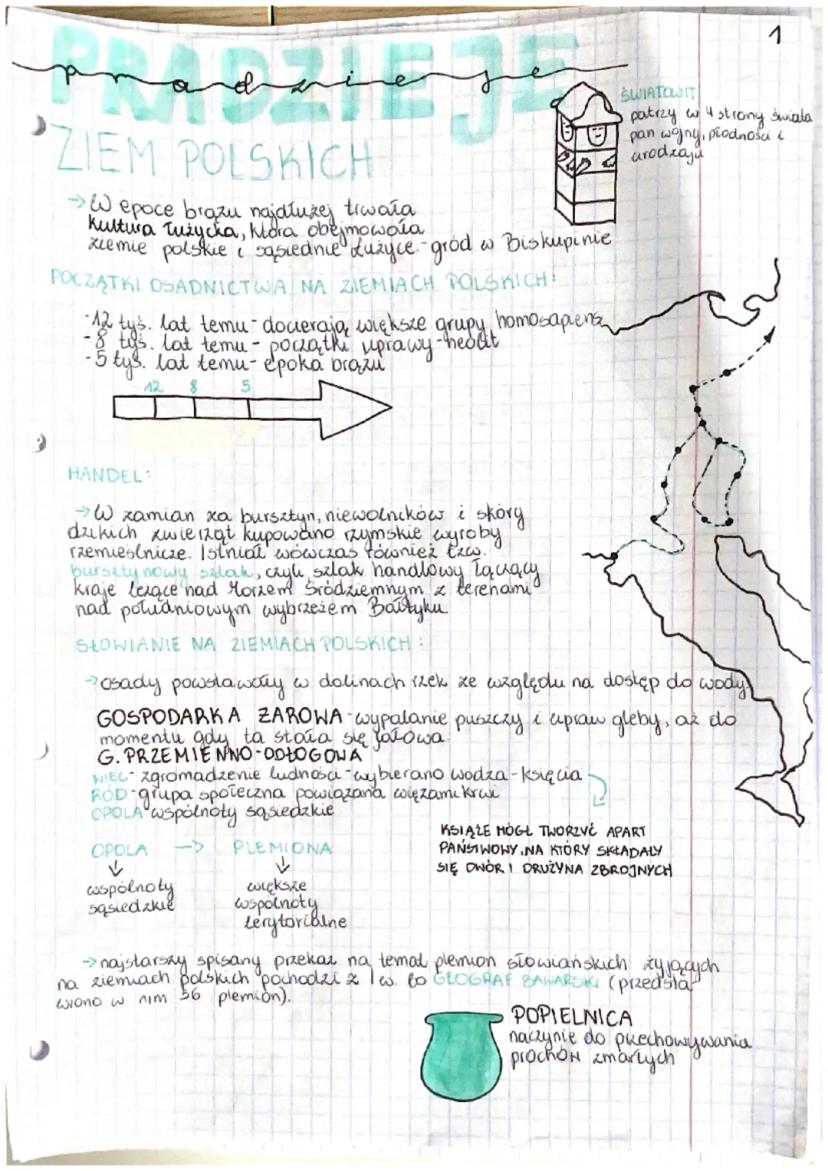 1
PRADZIEJE
pradzieje
ZIEM POLSKICH
ŚWIATOWIT
patrzy w 4 strony świata
pan wojny, płodności i
urodzaju
→ W epoce brązu najdłużej trwała
kultura łużycka, która obejmowała
ziemie polskie i sąsiednie Łużyce.-gród w Biskupinie
POCZĄTKI OSADNICTWA NA ZIEMIACH POLSKICH:
-12 tyś. lat temu-docierają większe grupy homosapiens
-8 tyś. lat temu- początki uprawy-neolit
-5 tyś. lat temu-epoka brązu
12 8 5
HANDEL:
→ W zamian za bursztyn, niewolników i skóry
dzikich zwierząt kupowano rzymskie wyroby
rzemieślnicze. Istniał wówczas również tzw.
bursztynowy szlak, czyli szlak handlowy łączący
kraje leżące nad Morzem Śródziemnym z terenami
nad południowym wybrzeżem Bałtyku.
SŁOWIANIE NA ZIEMIACH POLSKICH:
→ osady powstawały w dolinach rzek ze względu na dostęp do wody
GOSPODARKA ŻAROWA-wypalanie puszczy i upraw gleby, aż do
momentu gdy ta stała się jałowa.
G. PRZEMIENNO-ODŁOGOWA
WIEC- zgromadzenie ludności-wybierano wodza-księcia
RÓD-grupa społeczna powiązana więzami krwi
OPOLA-wspólnoty sąsiedzkie
KSIĄŻE MÓGŁ TWORZYĆ APART
PAŃSTWOWY, NA KTÓRY SKŁADAŁY
SIĘ DWÓR I DRUŻYNA ZBROJNYCH
OPOLA → PLEMIONA
↓ ↓
wspólnoty większe
sąsiedzkie wspólnoty
terytorialne
→ najstarszy spisany przekaz na temat plemion słowiańskich żyjących
na ziemiach polskich pochodzi z I w. to GEOGRAF BAWARSKI (przedsta
wiono w nim 56 plemion).
POPIELNICA
naczynie do przechowywania
prochów zmarłych